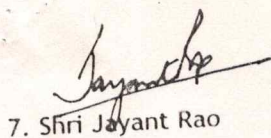 Jayant Rao
7. Shri Jayant Rao